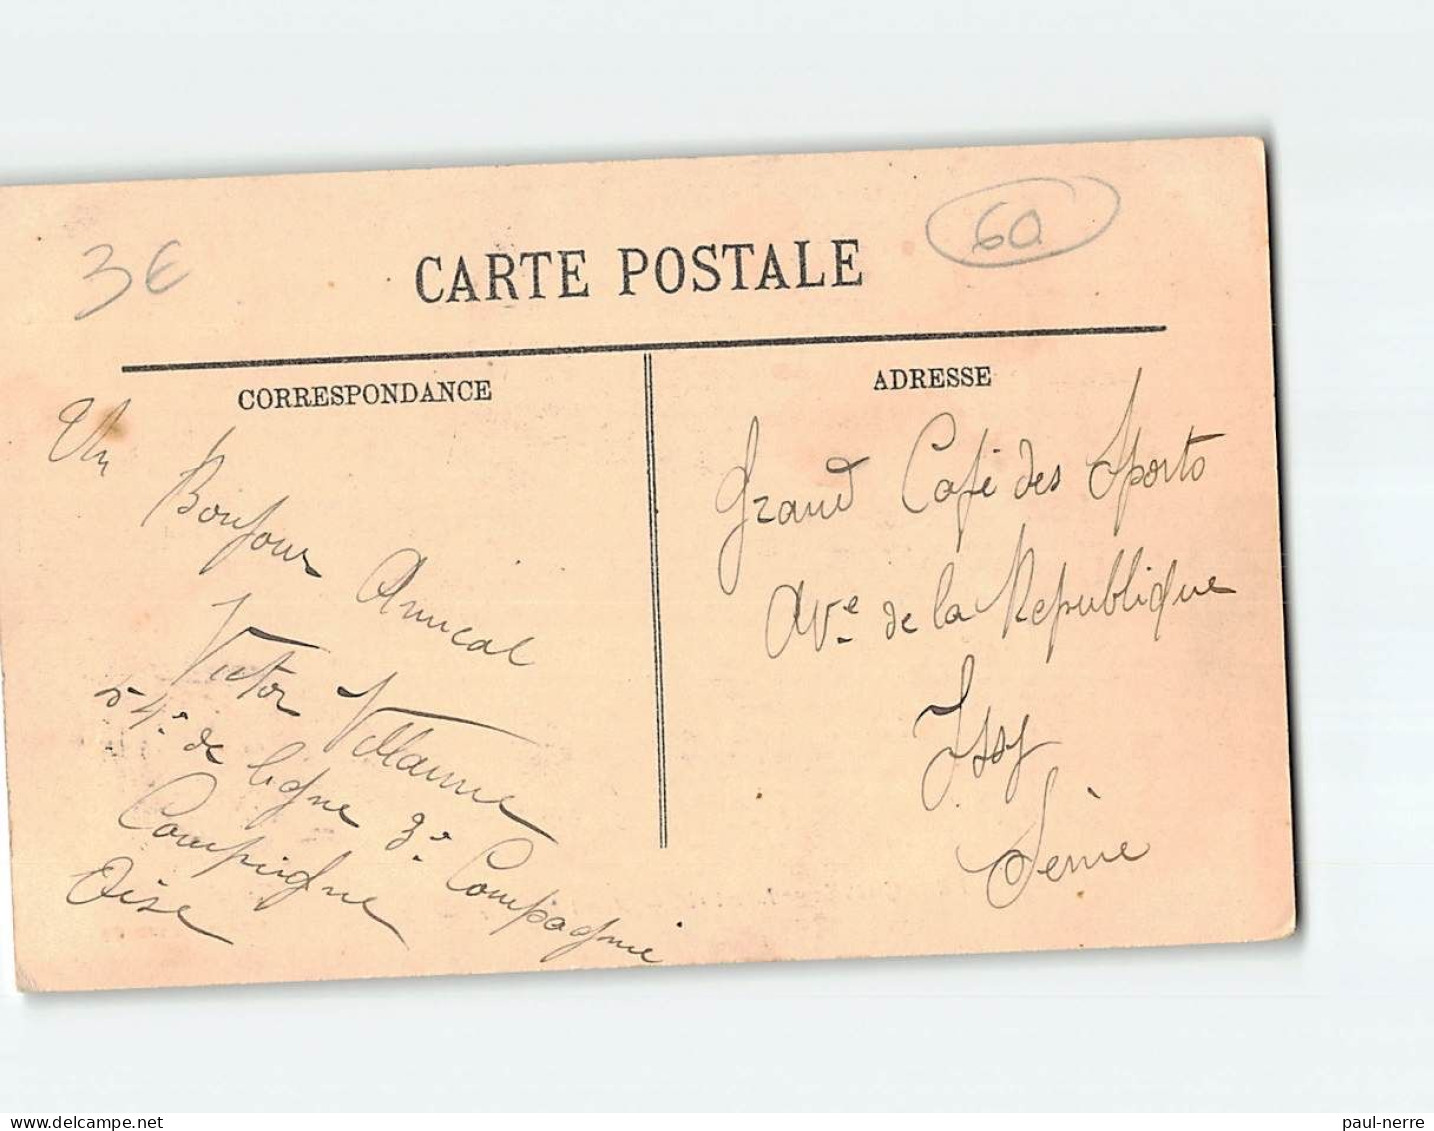 3€
60
CARTE POSTALE
CORRESPONDANCE
Un
Bonjour
Amical
Victor Villaume
54e de ligne 3e Compagnie
Compiègne
Oise
ADRESSE
Grand Café des Sports
Ave de la Republique
Issy
Seine
delcampe.net
paul-nerre